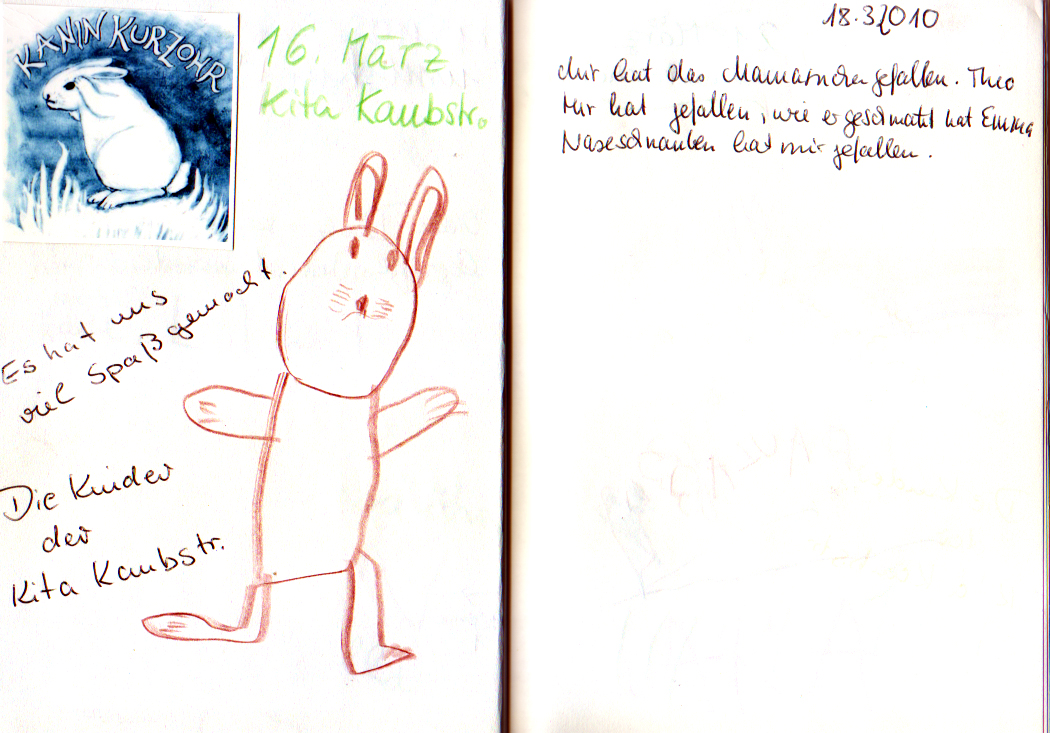 KANIN KURZOHR
16. März
Kita Kaubstr.
Es hat uns
viel Spaß gemacht.
Die Kinder
der
Kita Kaubstr.
18.3.2010
Mir hat das gefallen. Theo
Mir hat gefallen, wie er geschmatzt hat Emma
Naseschnauben hat mir gefallen.